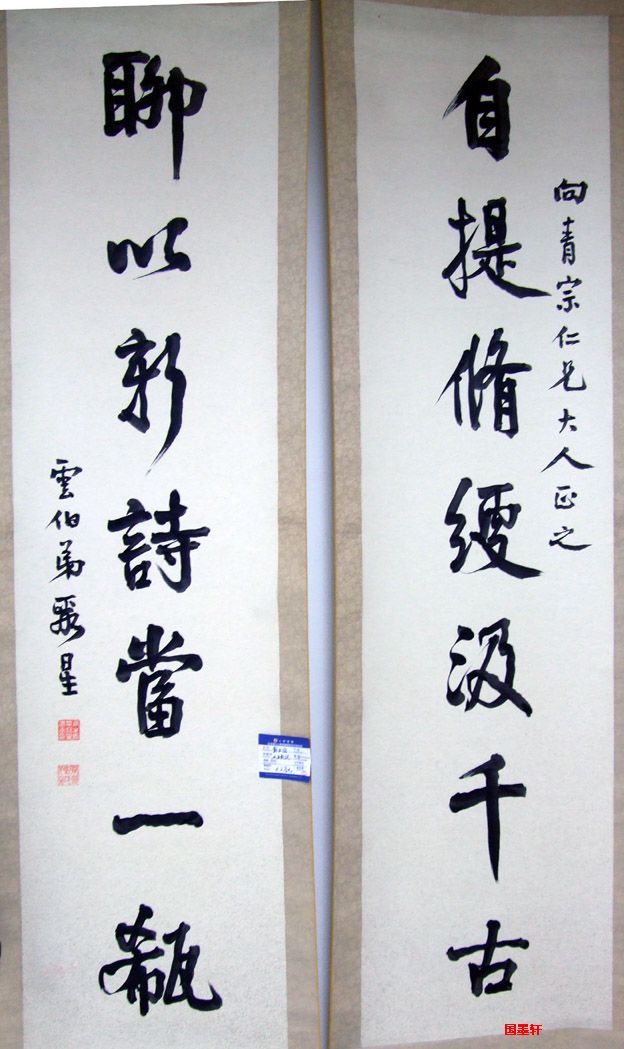 向青宗仁兄大人正之
自提脩綆汲千古
聊以新詩當一瓻
雲伯弟星
国墨轩